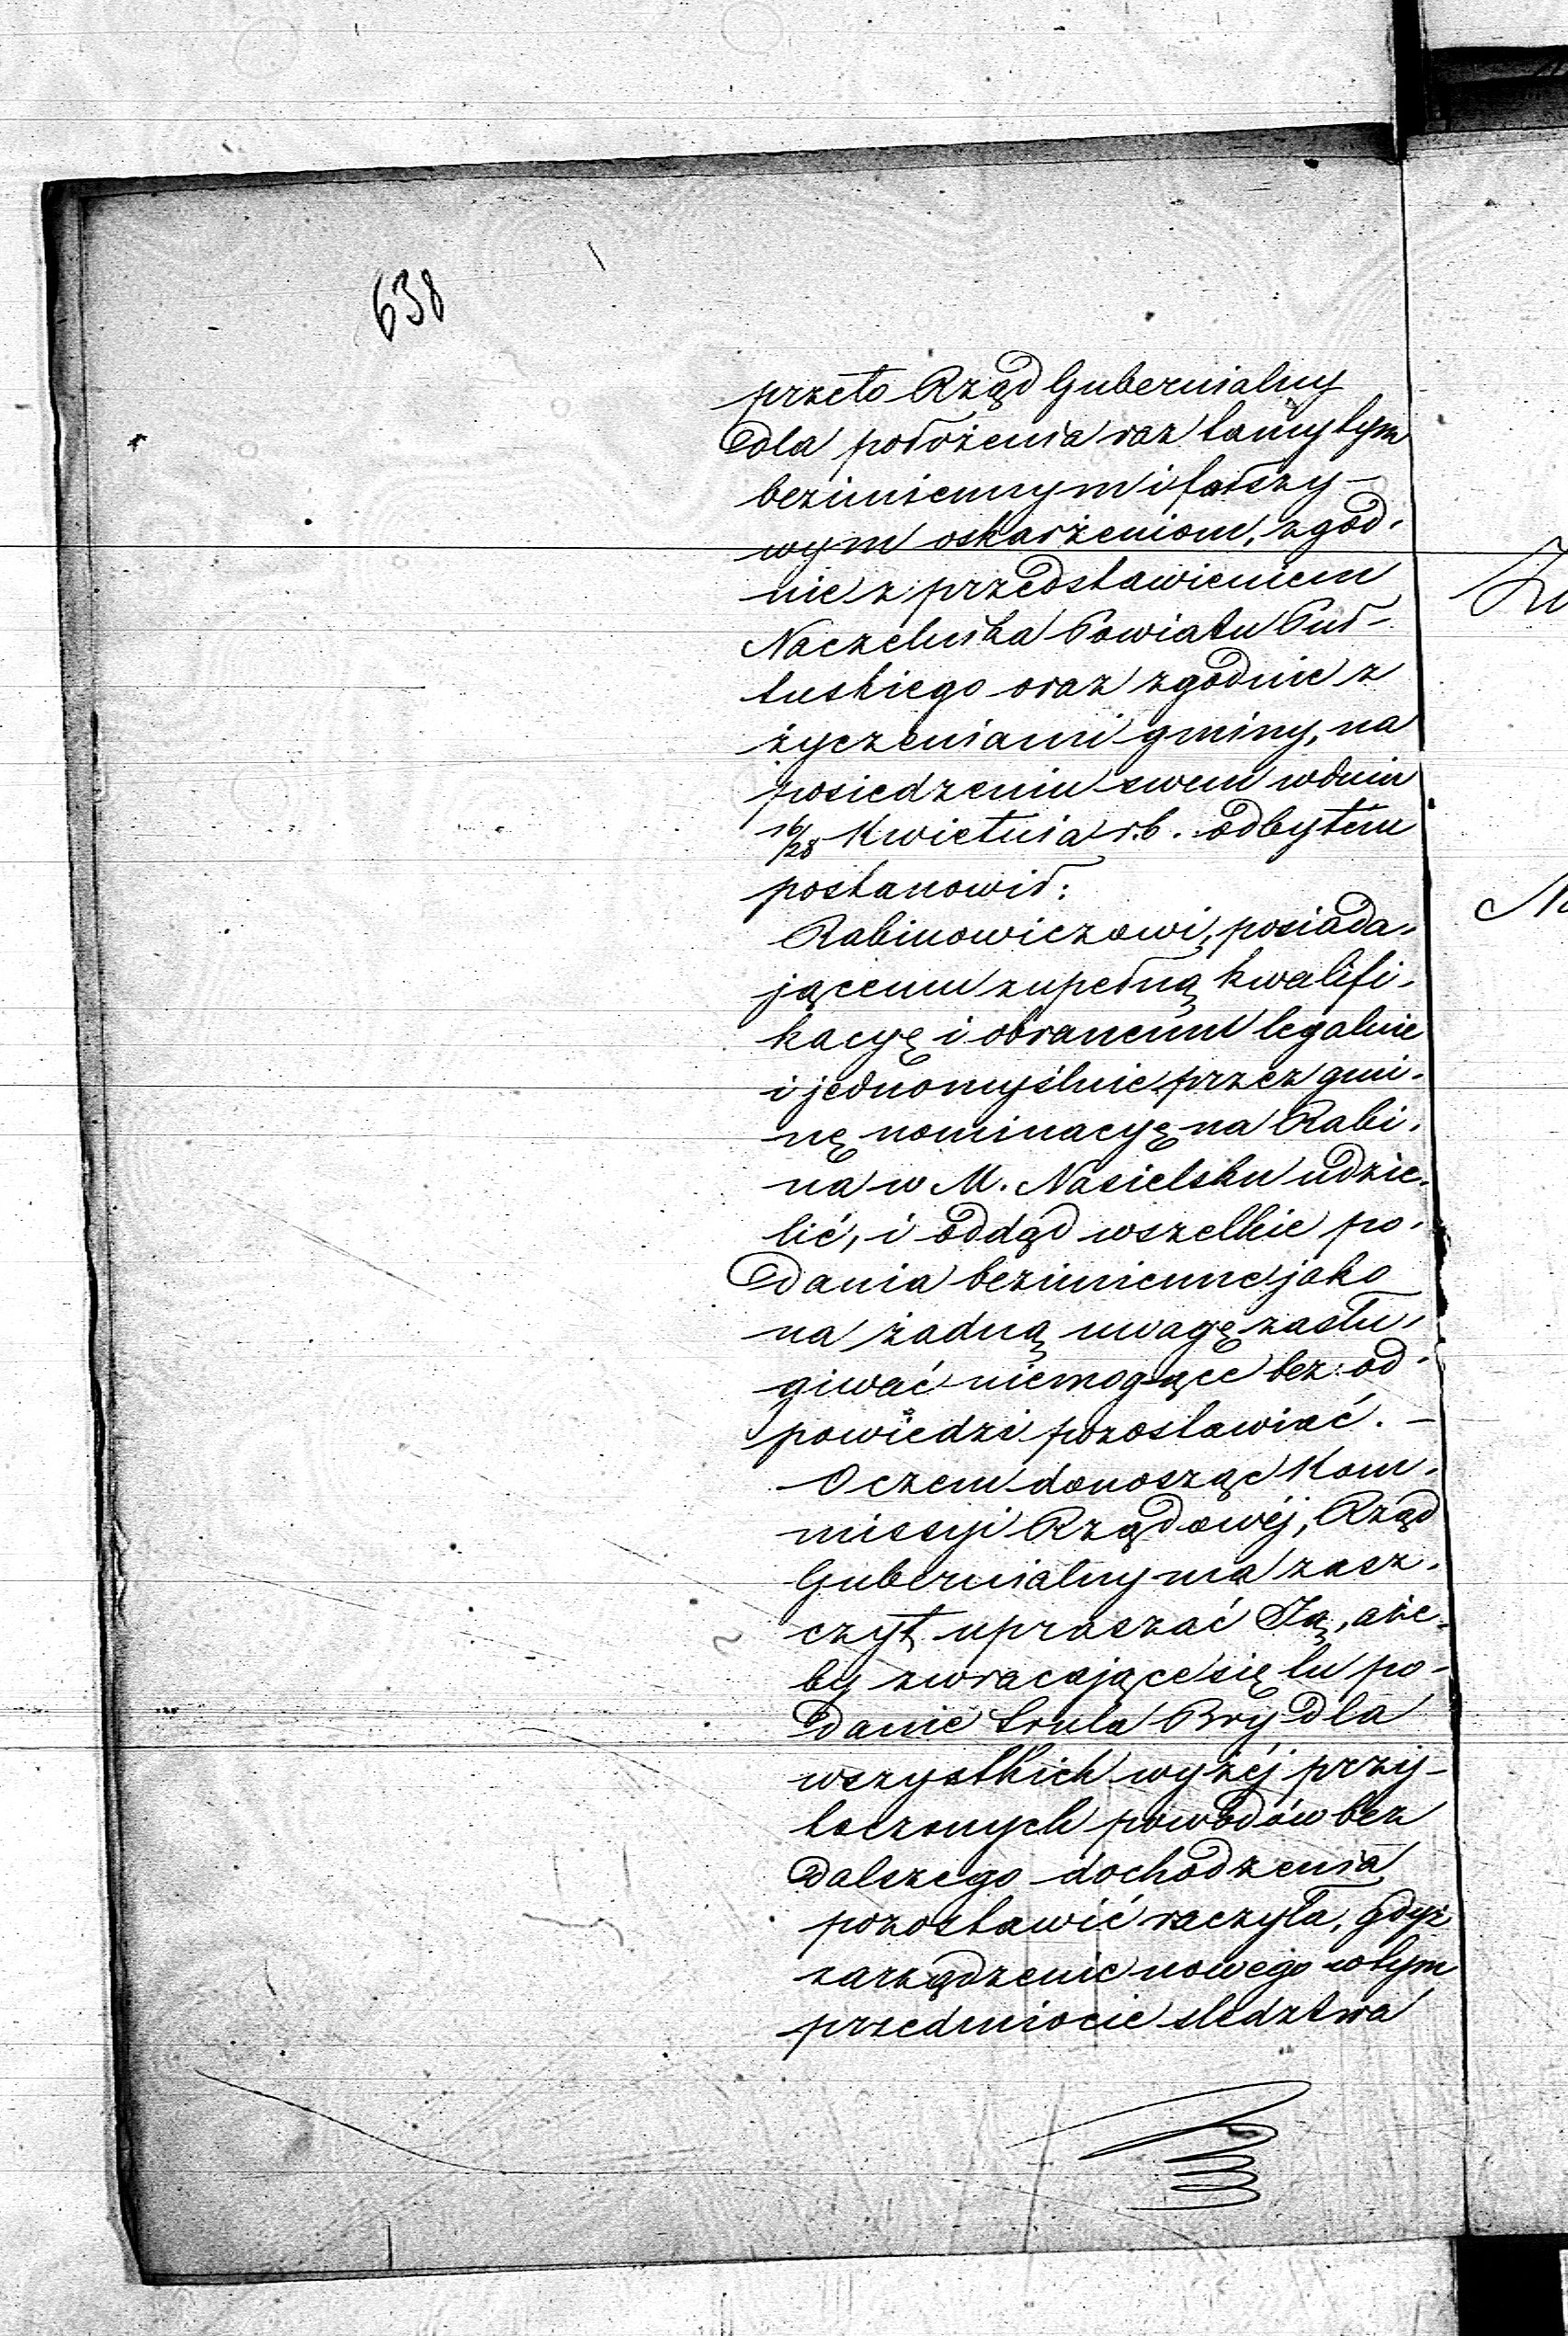 638
przeto Rząd Gubernialny
dla położenia raz tamy tym
bezimiennym i fałszy-
wym oskarżeniom, zgod-
nie z przedstawieniem
Naczelnika Powiatu Puł-
tuskiego oraz zgodnie z
życzeniami gminy, na
posiedzeniu swem w dniu
16/28 Kwietnia r.b. odbytém
postanowił:
Rabinowiczowi, posiada-
jącemu zupełną kwalifi-
kacyę i obranemu legalnie
i jednomyślnie przez gmi-
nę nominacyę na Rabi-
na w M. Nasielsku udzie-
lić, i oddąd wszelkie po-
dania bezimienne jako
na żadną uwagę zasłu-
giwać niemogące bez od-
powiedzi pozostawiać. -
O czem donosząc Kom-
missyi Rządowéj, Rząd
Gubernialny ma zasz-
czyt upraszać Ją, aże-
by zwracające się tu po-
danie Srula Bry dla
wszystkich wyżéj przy-
toczonych powodów bez
dalszego dochodzenia
pozostawić raczyła, gdyż
zarządzenie nowego w tym
przedmiocie sledztwa